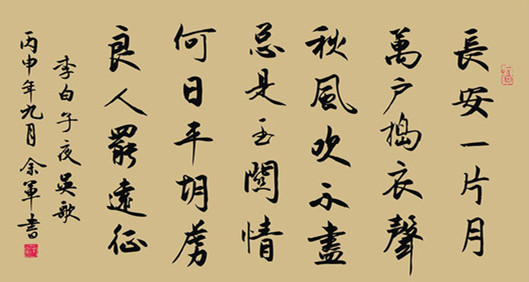 長安一片月
萬户搗衣聲
秋風吹不盡
總是玉關情
何日平胡虜
良人罷遠征
李白子夜吳歌
丙申年九月余軍書